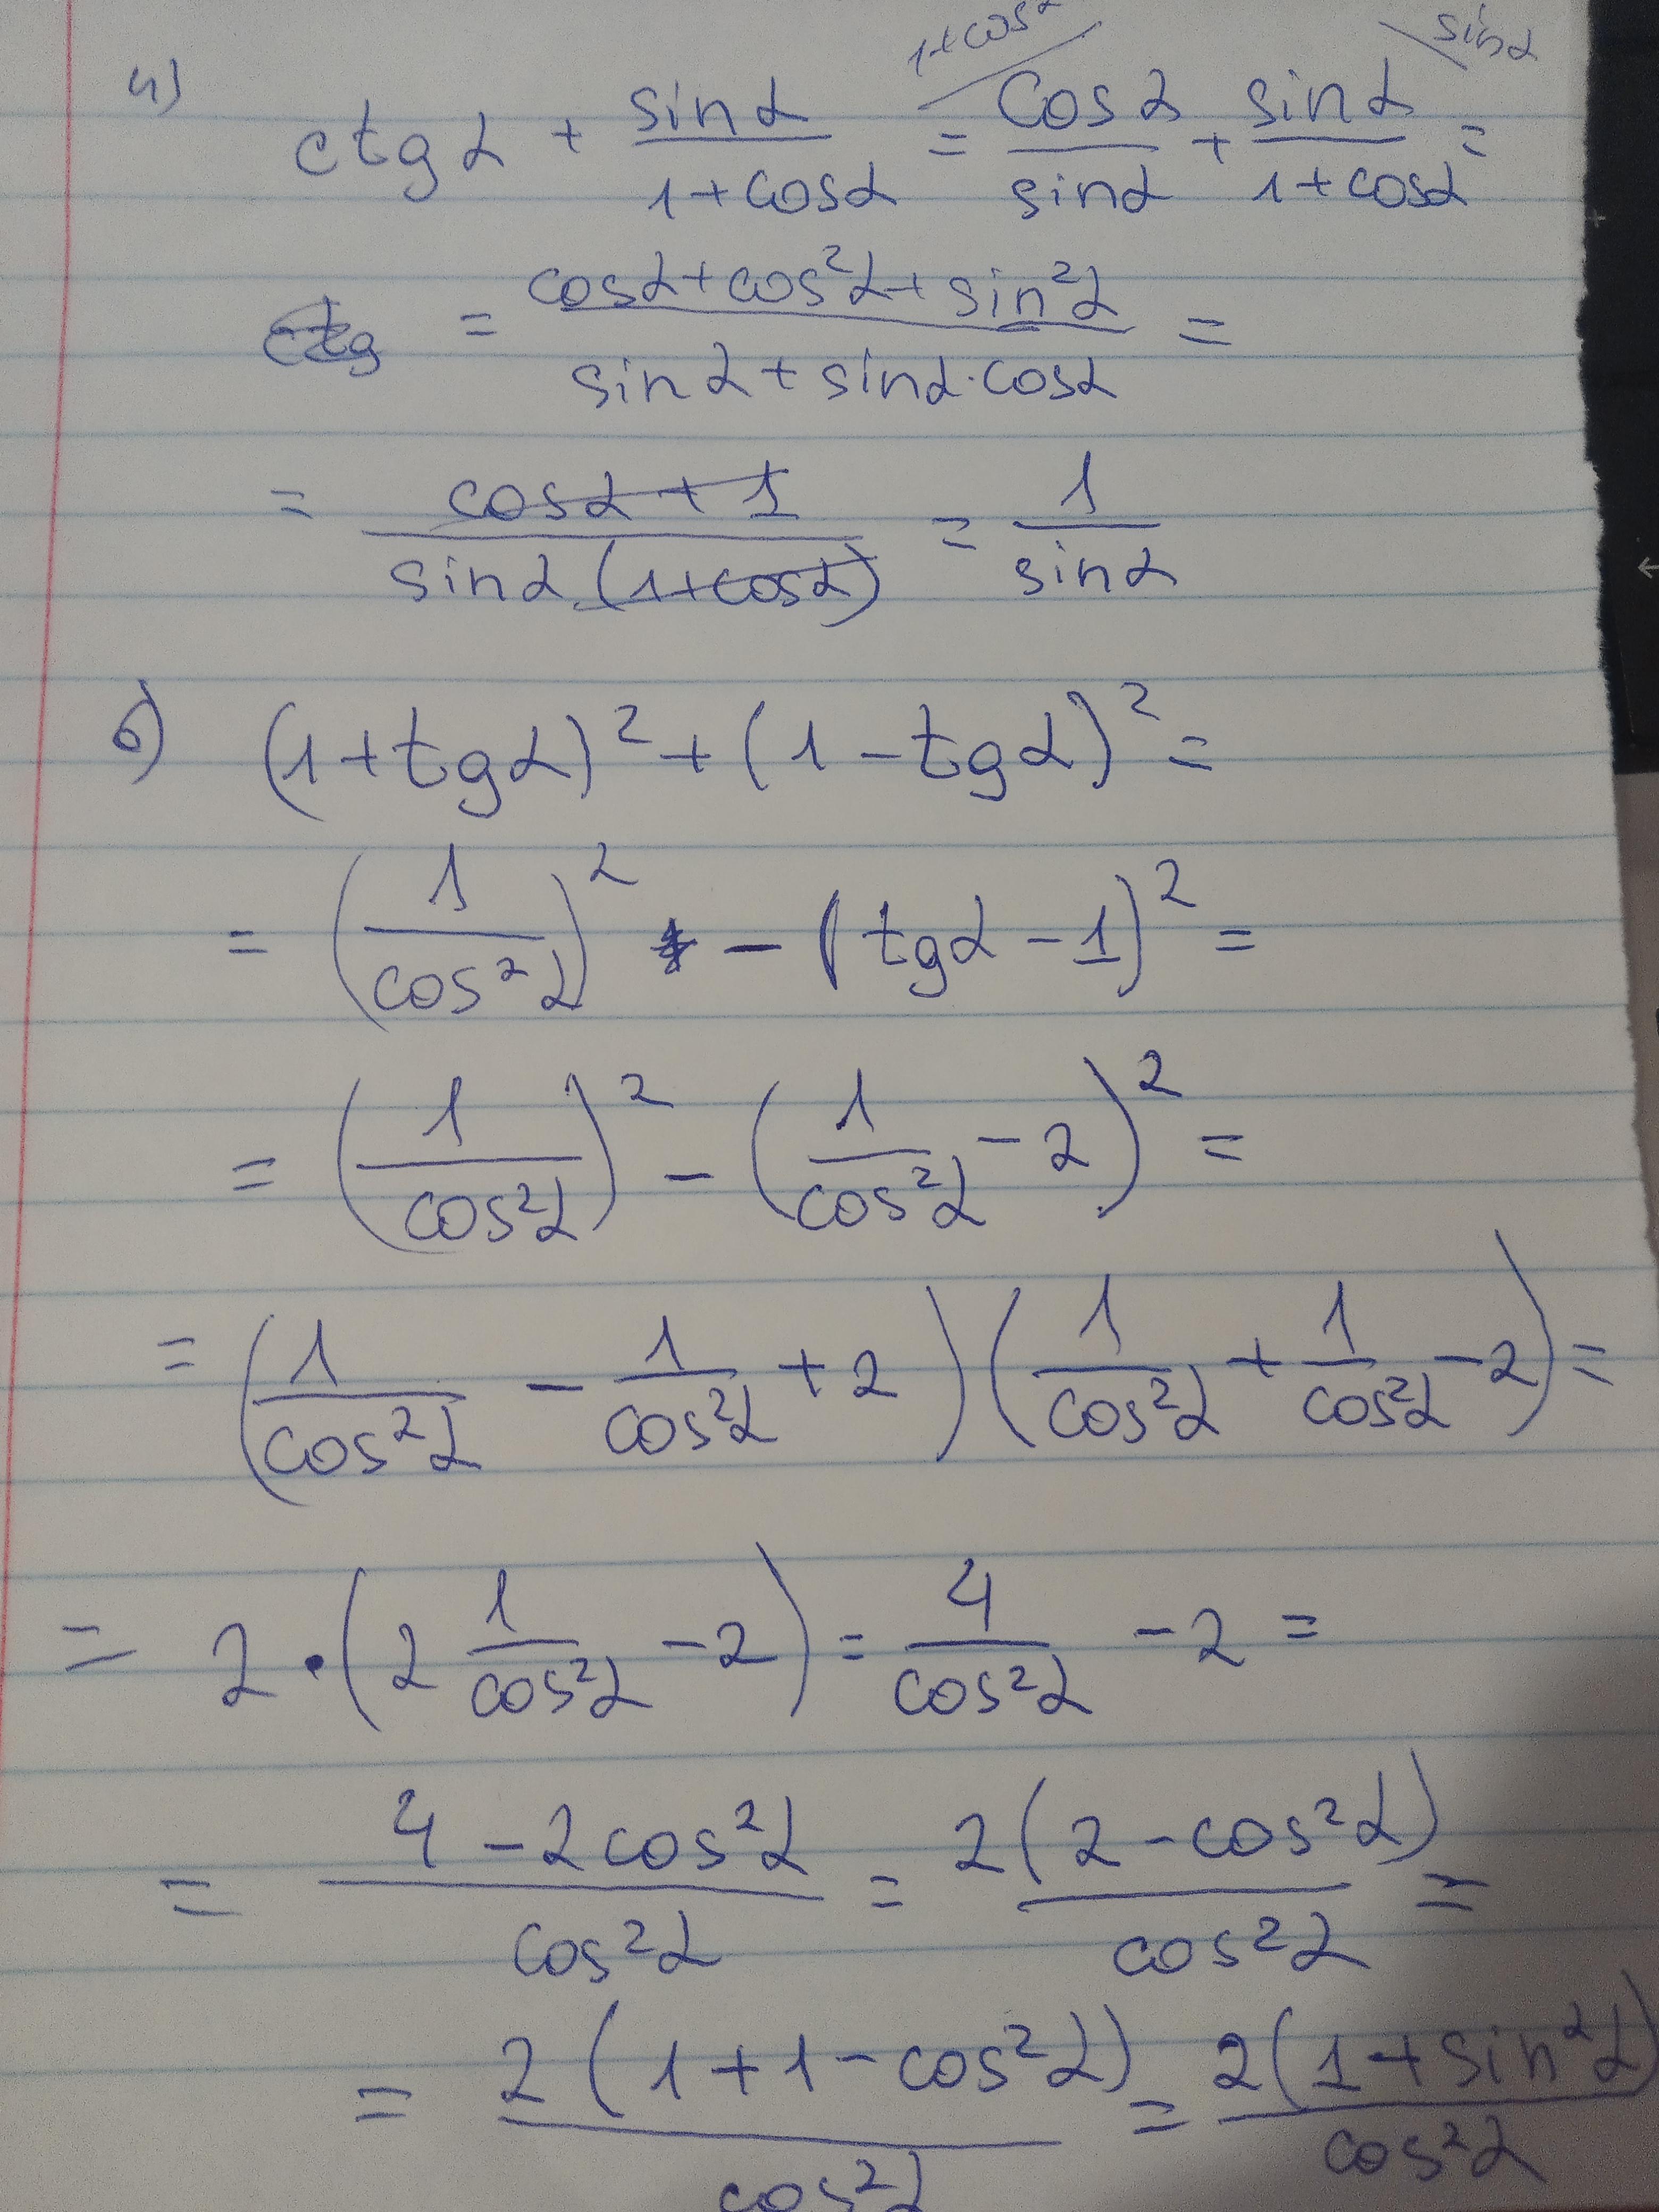 1+cosα sinα
4) ctgα + sinα/(1+cosα) = cosα/sinα + sinα/(1+cosα) =
ctg = (cosα+cos²α+sin²α)/(sinα+sinα·cosα) =
= (cosα+1)/(sinα(1+cosα)) = 1/sinα
б) (1+tgα)²+(1-tgα)²=
= (1/cos²α)² - (tgα-1)² =
= (1/cos²α)² - (1/cos²α - 2)² =
= (1/cos²α - 1/cos²α + 2)(1/cos²α + 1/cos²α - 2) =
= 2·(2 1/cos²α - 2) = 4/cos²α - 2 =
= (4-2cos²α)/cos²α = 2(2-cos²α)/cos²α =
= 2(1+1-cos²α)/cos²α = 2(1+sin²α)/cos²α